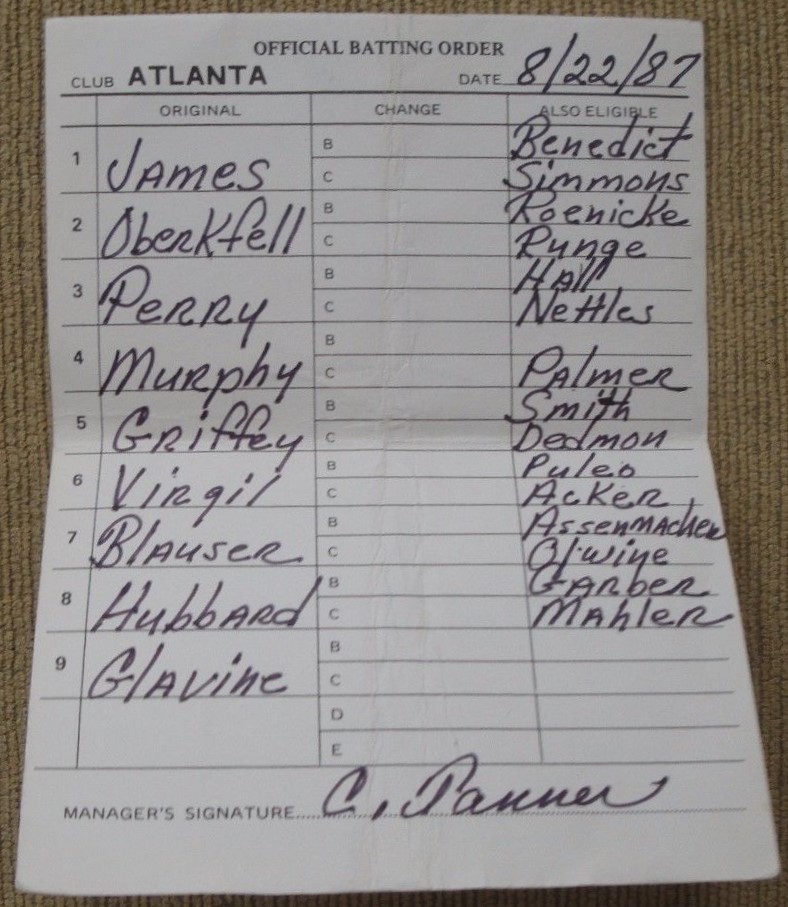 OFFICIAL BATTING ORDER
CLUB ATLANTA DATE 8/22/87
ORIGINAL CHANGE ALSO ELIGIBLE
1 James B Benedict
C Simmons
2 Oberkfell B Roenicke
C Runge
3 Perry B Hall
C Nettles
4 Murphy B
C Palmer
5 Griffey B Smith
C Dedmon
6 Virgil B Puleo
C Acker
7 Blauser B Assenmacher
C Olwine
8 Hubbard B Garber
C Mahler
9 Glavine B
C
D
E
MANAGER'S SIGNATURE..... C. Tanner